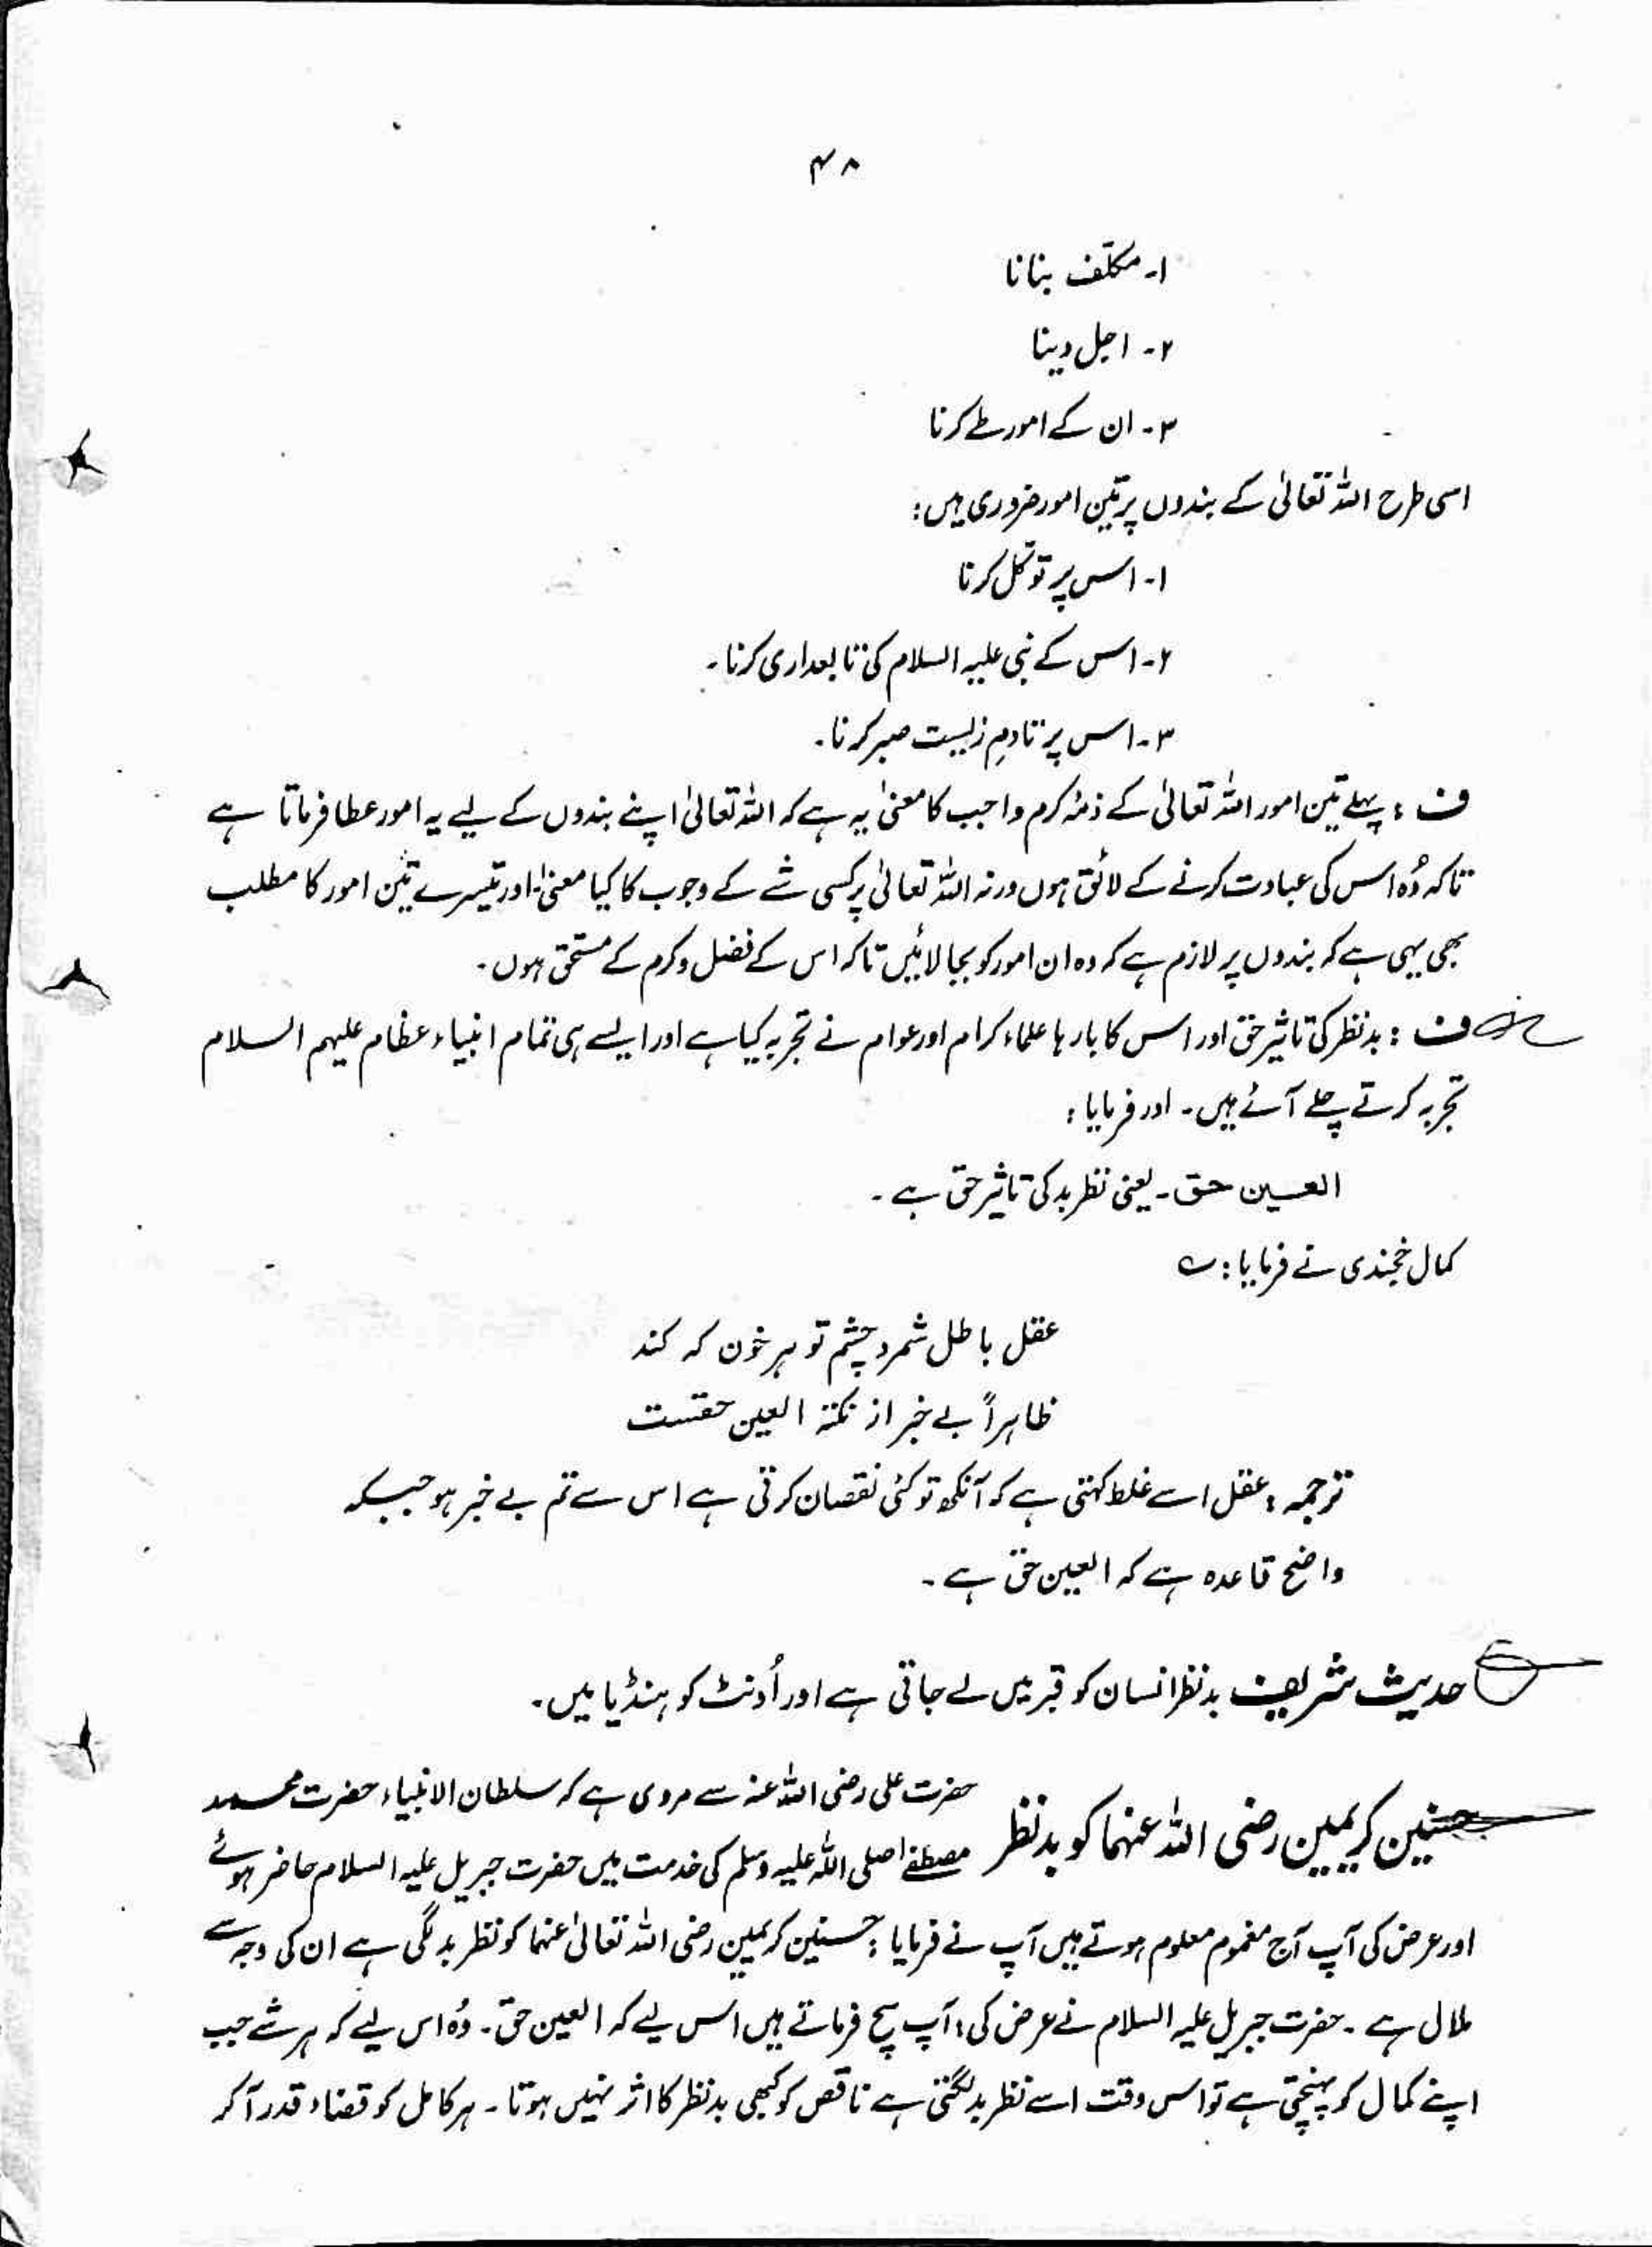 ۴۸
۱- مکلّف بنانا
۲- اجل دینا
۳- ان کے امور طے کرنا
اسی طرح اللہ تعالیٰ کے بندوں پر تین امور ضروری ہیں:
۱- اس پر توکّل کرنا
۲- اس کے نبی علیہ السلام کی تابعداری کرنا۔
۳- اس پر تادمِ زلیست صبر کرنا۔
ف: پہلے تین امور اللہ تعالیٰ کے ذمۂ کرم واجب کا معنیٰ یہ ہے کہ اللہ تعالیٰ اپنے بندوں کے لیے یہ امور عطا فرماتا ہے
تاکہ وُہ اس کی عبادت کرنے کے لائق ہوں ورنہ اللہ تعالیٰ پر کسی شے کے وجوب کا کیا معنیٰ، اور تیسرے تین امور کا مطلب
بھی یہی ہے کہ بندوں پر لازم ہے کہ وہ ان امور کو بجا لائیں تاکہ اس کے فضل و کرم کے مستحق ہوں۔
ف: بدنظر کی تاثیر حق اور اس کا بارہا علماء کرام اور عوام نے تجربہ کیا ہے اور ایسے ہی تمام انبیاء عظام علیہم السلام
تجربہ کرتے چلے آئے ہیں۔ اور فرمایا:
العین حق۔ یعنی نظر بد کی تاثیر حق ہے۔
کمال خجندی نے فرمایا: ؎
عقل باطل شمرد چشم تو ہر خون کہ کند
ظاہراً بے خبر از نکتۂ العین حقست
ترجمہ: عقل اسے غلط کہتی ہے کہ آنکھ تو کئی نقصان کرتی ہے اس سے تم بے خبر ہو جبکہ
واضح قاعدہ ہے کہ العین حق ہے۔
حدیث شریف بدنظر انسان کو قبر میں لے جاتی ہے اور اُونٹ کو ہنڈیا میں۔
حسنین کریمین رضی اللہ عنہما کو بدنظر حضرت علی رضی اللہ عنہ سے مروی ہے کہ سلطان الانبیاء حضرت محمد
مصطفےٰ صلی اللہ علیہ وسلم کی خدمت میں حضرت جبریل علیہ السلام حاضر ہوئے
اور عرض کی آپ آج مغموم معلوم ہوتے ہیں آپ نے فرمایا: حسنین کریمین رضی اللہ تعالیٰ عنہما کو نظر بد لگی ہے ان کی وجہ سے
ملال ہے۔ حضرت جبریل علیہ السلام نے عرض کی: آپ سچ فرماتے ہیں اس لیے کہ العین حق۔ وُہ اس لیے کہ ہر شے جب
اپنے کمال کو پہنچتی ہے تو اس وقت اسے نظر بد لگتی ہے ناقص کو کبھی بدنظر کا اثر نہیں ہوتا۔ ہر کامل کو قضاء قدر آ کر